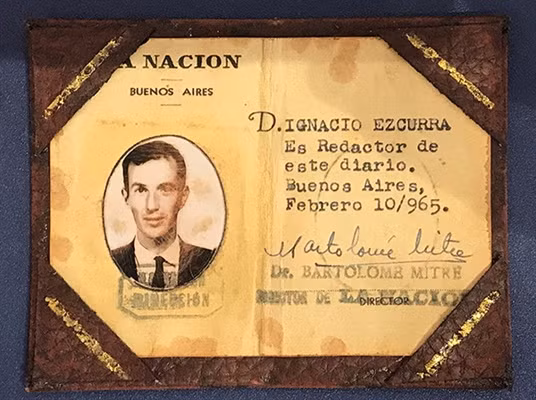 LA NACION
BUENOS AIRES
D. IGNACIO EZCURRA
Es Redactor de
este diario.
Buenos Aires,
Febrero 10/965.
Bartolomé Mitre
Dr. BARTOLOME MITRE
DIRECTOR DE LA NACION
DIRECTOR